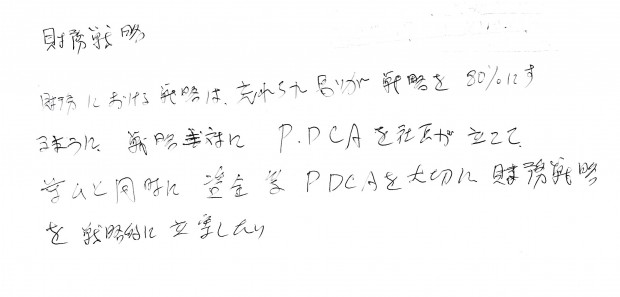 財務戦略
財務における戦略は、忘れられ 戦略を 80%にす
るように、戦略 に P.DCAを社長が立てて、
学ぶと同時に 資金 PDCAを大切に 財務戦略
を 戦略的に 立案したい